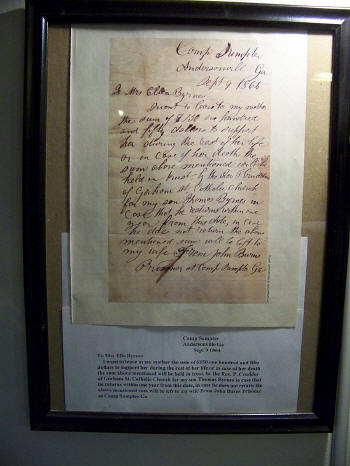 Camp Sumpter
Andersonville Ga
Sept 9 1864
To Mrs Ellen Byrnes
I want to leave to my mother
the sum of $150 one hundred
and fifty dollars to support
her during the rest of her life
or in case of her death the
sum above mentioned will be
held in trust by the Rev P
of Gorham st Catholic church
for my son Thomas Byrnes in
case that he returns within one
year from this date, in case
he does not return the above
mentioned sum will be left to
my wife From John Burns
Prisoner at Camp Sumpter Ga
Camp Sumter
Andersonville Ga
Sept 9 1864
To Mrs. Ella Byrnes
I want to leave to my mother the sum of $150 one hundred and fifty
dollars to support her during the rest of her life or in case of her death
the sum above mentioned will be held in trust, by the Rev. P. Crudden
of Gorham St. Catholic Church for my son Thomas Byrnes in case that
he returns within one year from this date, in case he does not return the
above mentioned sum will be left to my wife From John Burns Prisoner
at Camp Sumpter Ga